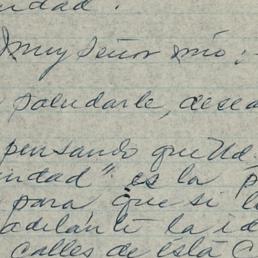 udad.
muy Señor mío:-
saludarle, desea
pensando que Ud.
undad". es la p
para que si l
adelante la id
calles de ésta C